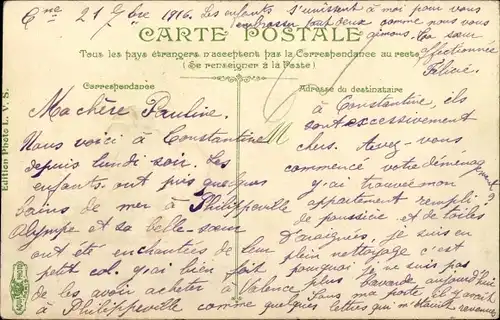 Cne 21 7bre 1916. Les enfants s'unissent à moi pour vous
embrasser tout deux comme nous vous
aimons. La sœur
affectionnée
Félicie.
CARTE POSTALE
Tous les pays étrangers n'acceptent pas la Correspondance au resto
(Se renseigner à la Poste)
Correspondance
Adresse du destinataire
Edition Photo L. V. S.
Ma chère Pauline.
Nous voici à Constantine
depuis lundi soir. Les
enfants ont pris quelques
bains de mer à Philippeville
Olympe et sa belle-sœur
ont été enchantées de leur
petit col. j'ai bien fait
de les avoir acheter à Valence
à Philippeville comme quelques
à Constantine, ils
sont excessivement
chers. Avez-vous
commencé votre déménagement?
j'ai trouvé mon
appartement rempli
de poussière et de toiles
d'araignées, je suis en
plein nettoyage c'est
pourquoi je ne suis pas
plus bavarde aujourd'hui
Dans ma poste il y avait
lettres qui m'étaient revenues